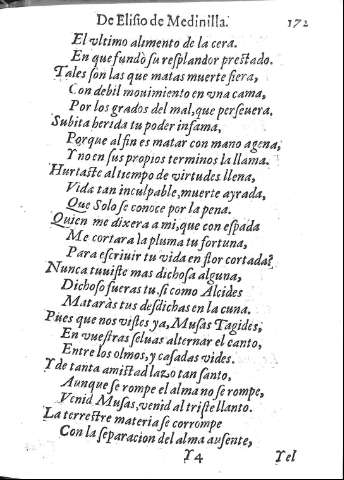 De Elisio de Medinilla. 172
El vltimo alimento de la cera.
En que fundò su resplandor prestado.
Tales son las que matas muerte fiera,
Con debil mouimiento en vna cama,
Por los grados del mal, que perseuera.
Subita herida tu poder infama,
Porque al fin es matar con mano agena,
Y no en sus propios terminos la llama.
Hurtaste al tiempo de virtudes llena,
Vida tan inculpable, muerte ayrada,
Que Solo se conoce por la pena.
Quien me dixera a mi, que con espada
Me cortara la pluma tu fortuna,
Para escriuir tu vida en flor cortada?
Nunca tuuiste mas dichosa alguna,
Dichoso fueras tu, si como Alcides
Mataràs tus desdichas en la cuna.
Pues que nos vistes ya, Musas Tagides,
En vuestras seluas alternar el canto,
Entre los olmos, y casadas vides.
Y de tanta amistad lazo tan santo,
Aunque se rompe el alma no se rompe,
Venid Musas, venid al triste llanto.
La terrestre materia se corrompe
Con la separacion del alma ausente,
Y4 Y el